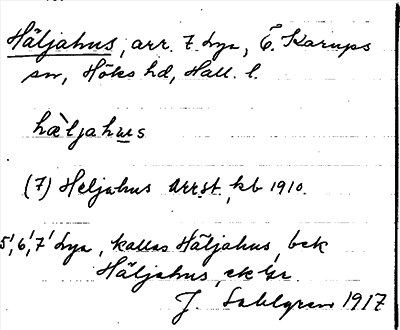 Häljahus, arr. 7. Lya, Ö. Karups
sn, Höks hd, Hall. l.
hæ̀ljahus
(7) Heljahus arr.st. kb 1910.
5', 6', 7' Lya, kallas Häljahus, bck
Häljahus, ek Gr
J. Sahlgren 1917